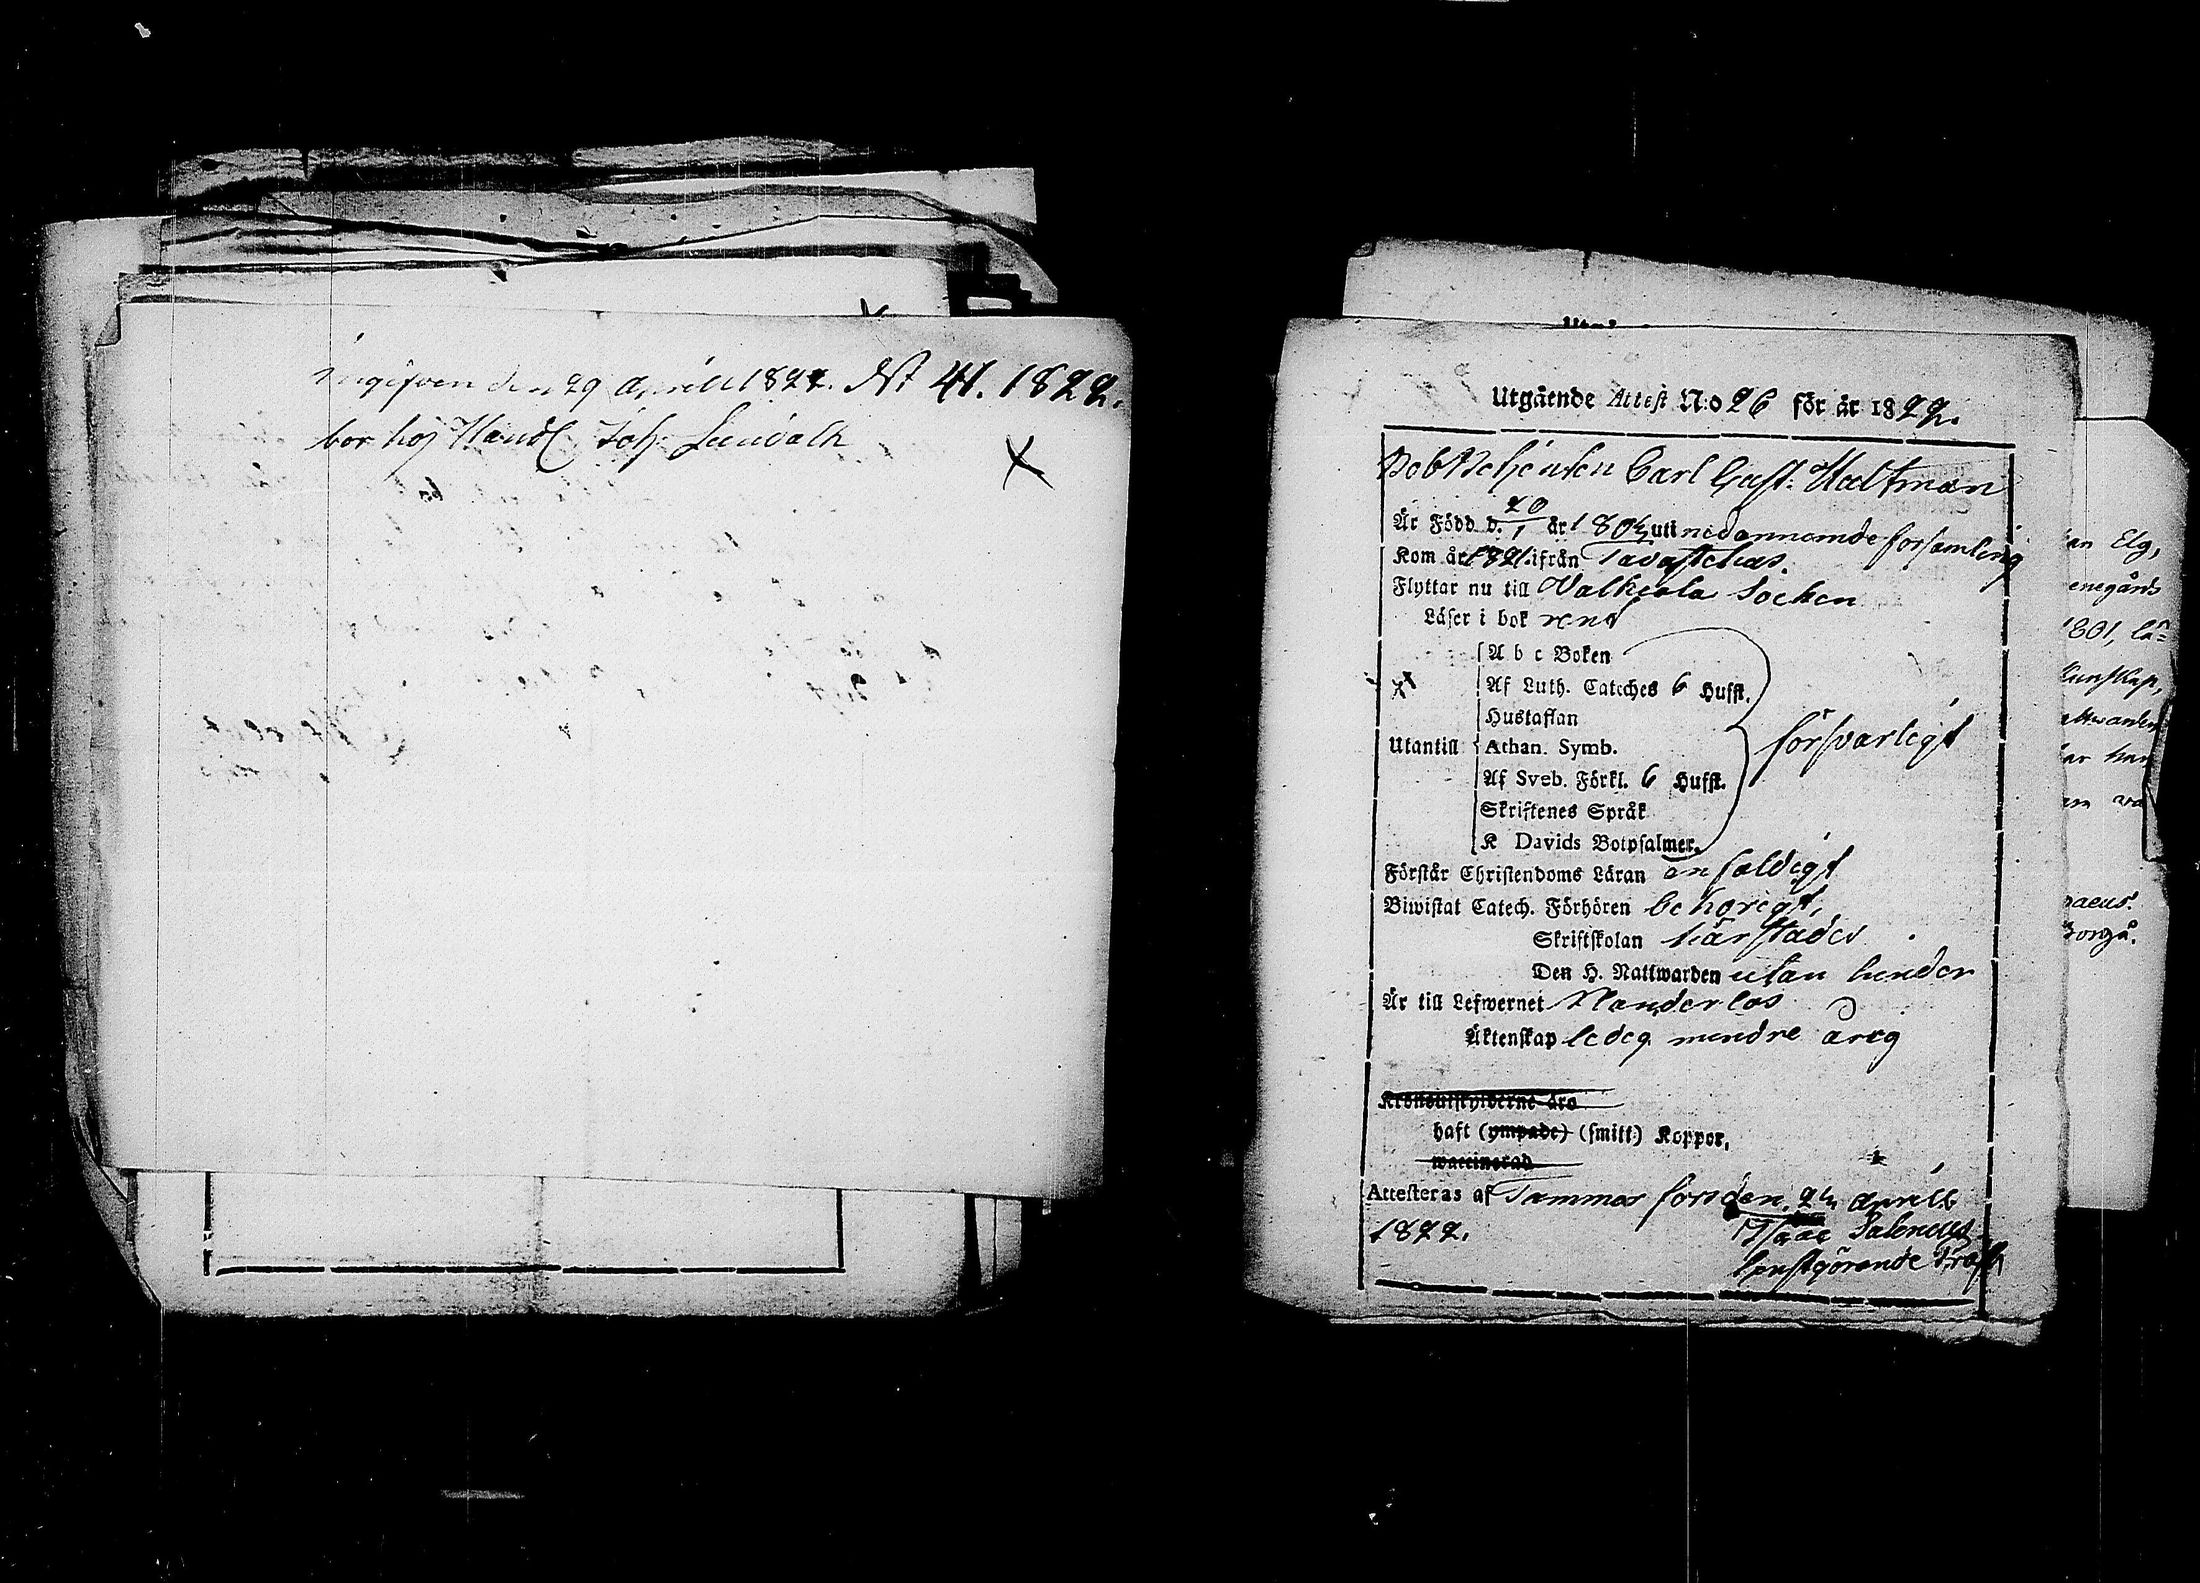 ingifven den 29 Aprill 1822. No 41. 1822.
bor hoj Handl Joh: Lundath
Utgående Attest N:o 26 för år 1822.
Carl Gust: Haltman
Är Född d. 20/1 är 1804 uti nedannämde församling
Kom år 1821. ifrån Tavastehus.
Flyttar nu till Valkeala Socken
Läser i bok rent
A b c Boken
Af Luth. Cateches 6 Hufst.
Hustaflan
Utantill Athan. Symb. försvarligt
Af Sveb. Förkl. 6 Hufst.
Skriftenes Språk
K Davids Botpsalmer.
Förstår Christendoms Läran enfaldigt
Biwistat Catech. Förhören behörigt,
Skriftskolan härstädes
Den H. Nattwarden utan hinder
Är till Lefwernet Klanderlös
Äktenskap ledig mindre årig
Kronoutskylderne äro
haft (ympade) (smitt) Koppor,
waccinerad
Attesteras af Tammerfors den 24 Aprill
1822. Isaac Salenius
tjenstgörande
an Elg,
enegårds
1801, lä-
kunskap,
attwarden
ar han
paeus.
Borgå.